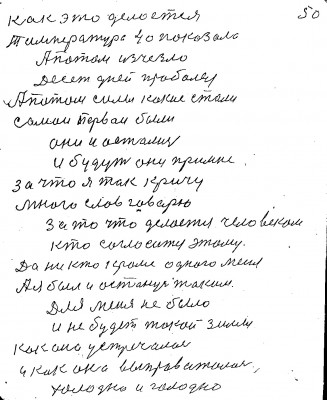 как это делоется 50
Температура 40 показала
Апотом изчезло
Десет дней проболел
Апотом силы какие стали
самои первои были
они и осталис
и будут они примне
за что я так кричу
много слов говорю
за то что делоется человеком
кто согласится этому.
Да никто кроме одного меня
Ая был и останус таким.
Для меня не было
и не будет такой зимы
как она устречалас
и как она выпроваталас,
холодно и голодно